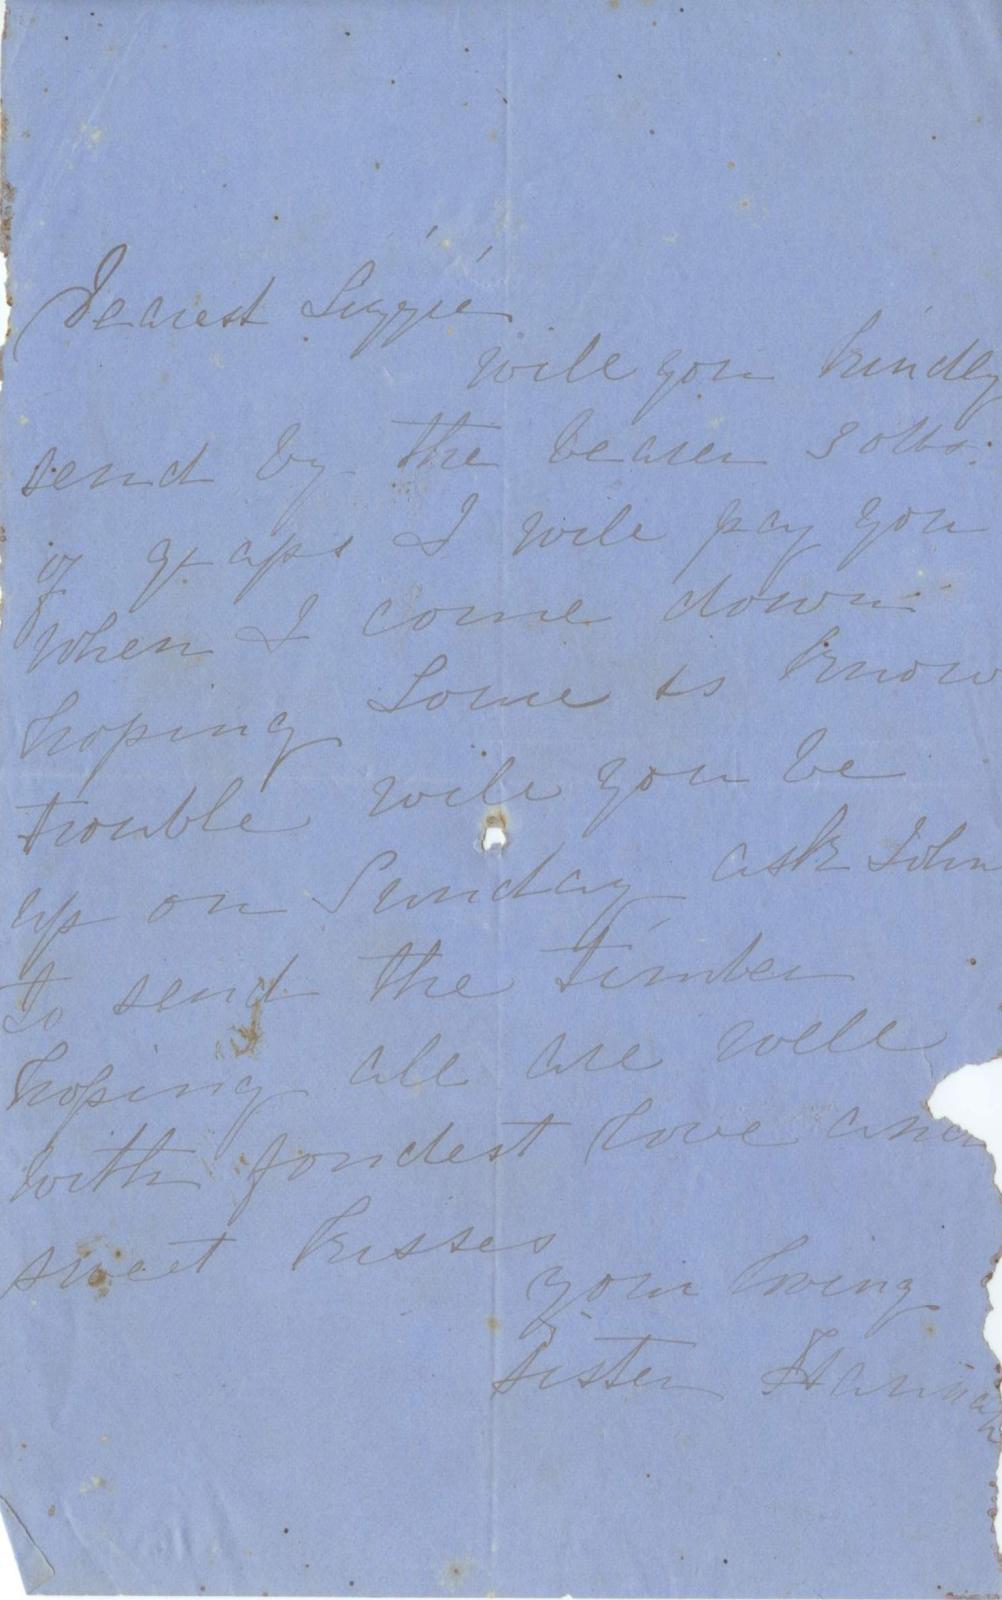 Dearest Lizzie
will you kindly
send by the bearer 30lbs.
of graps I will pay you
when I come down
hoping some is know
trouble will you be
up on Sunday ask John
to send the timber
hoping all are well
with fondest love and
sweet kisses
your loving
sister Hannah